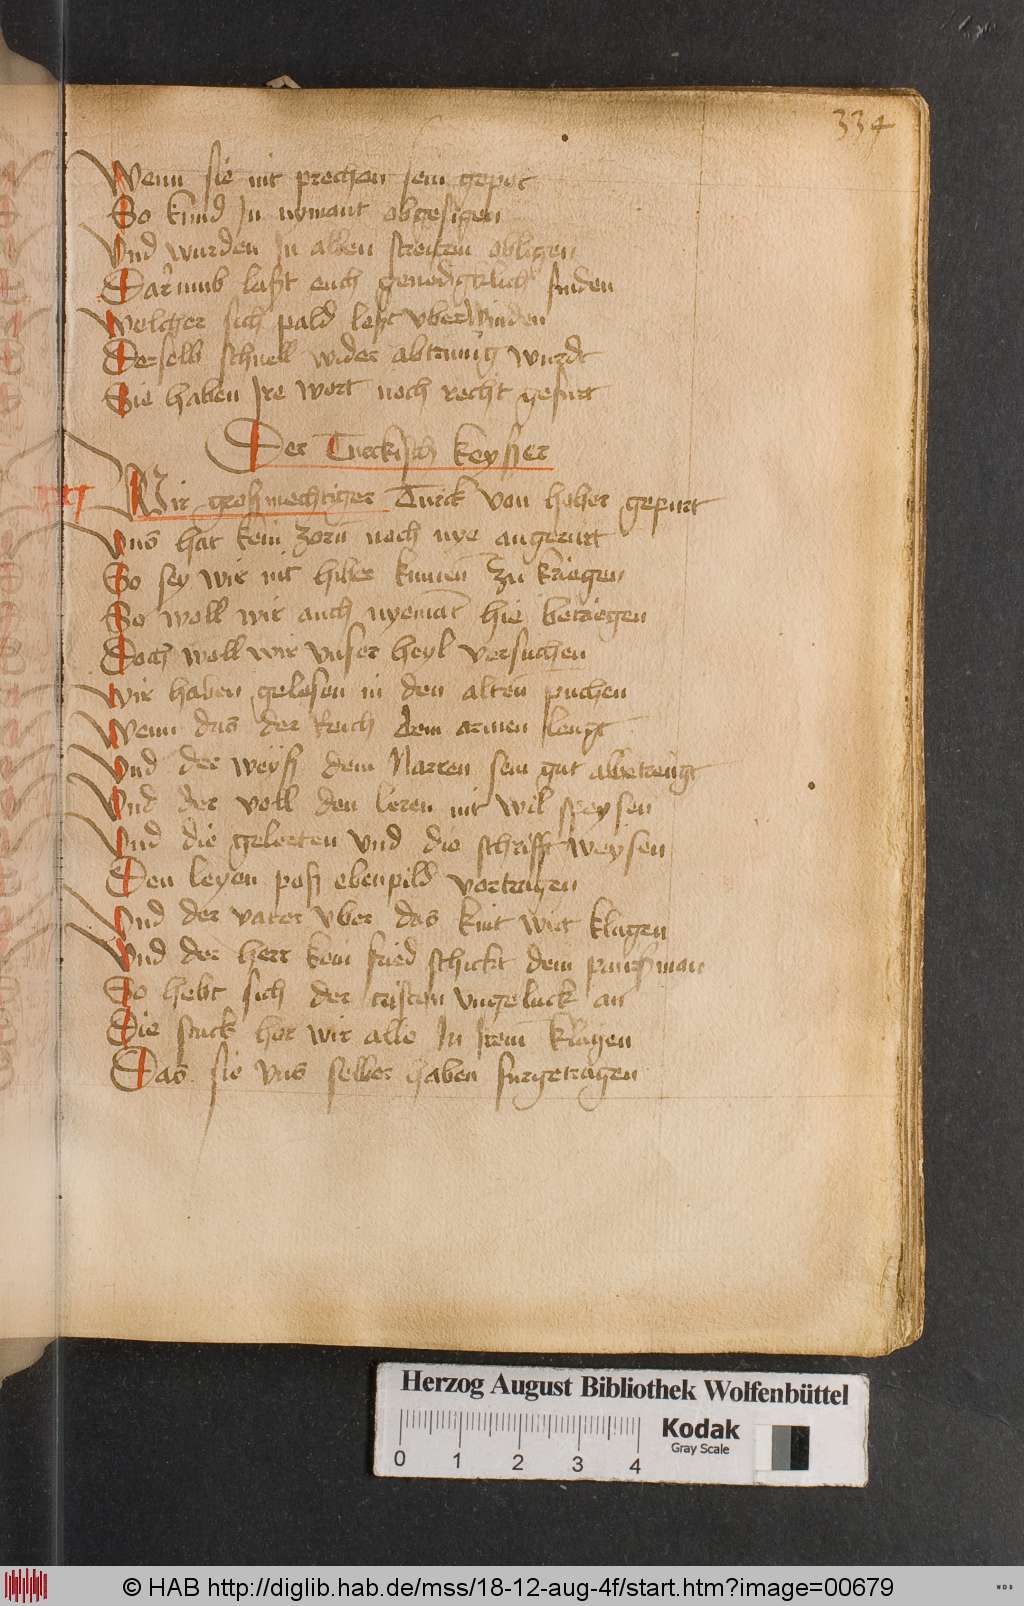 334
Wenn sie nit prechen sein gepot
So kund Jn nymant obgesigen
Vnd wurden Jn allen streiten obligen
Darumb laßt euch genediglich finden
Welcher sich pald leßt vberwinden
Derselb schnell wider abtrunig wurdt
Sie haben Jre wort noch recht gefurt
Der Turckisch keysser
Wir großmechtiger Turck von hoher gepurt
Vns hat kein zorn noch nye angerurt
So sey wir nit hilber kumen zu kriegen
So woll wir auch nyemant hie betriegen
Doch woll wir vnser heyl versuchen
Wir haben gelesen in den alten puchen
Wenn das der Reich dem armen leugt
Vnd der weyß dem Narren sein gut abetreugt
Vnd der voll den leren nit wil speysen
Vnd die gelerten vnd die schrifft weysen
Den leyen poß ebenpild vortragen
Vnd der vater vber das kint wirt klagen
Vnd der herr kein frid schickt dem paursman
So hebt sich der cristen vngeluck an
Die stuck hor wir alle Jn Jrem klagen
Das sie vns selber haben furgetragen
Herzog August Bibliothek Wolfenbüttel
Kodak
Gray Scale
0 1 2 3 4
© HAB http://diglib.hab.de/mss/18-12-aug-4f/start.htm?image=00679